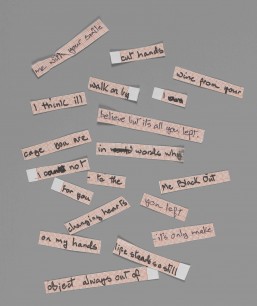 me with your smile
cut hands
wine from your
walk on by
I
I think ill
believe but it's all you left
cage you are
in words who
I not
to the
for you
Me Black Out
changing hearts
you left
it's only make
on my hands
lips steads so still
object always out of